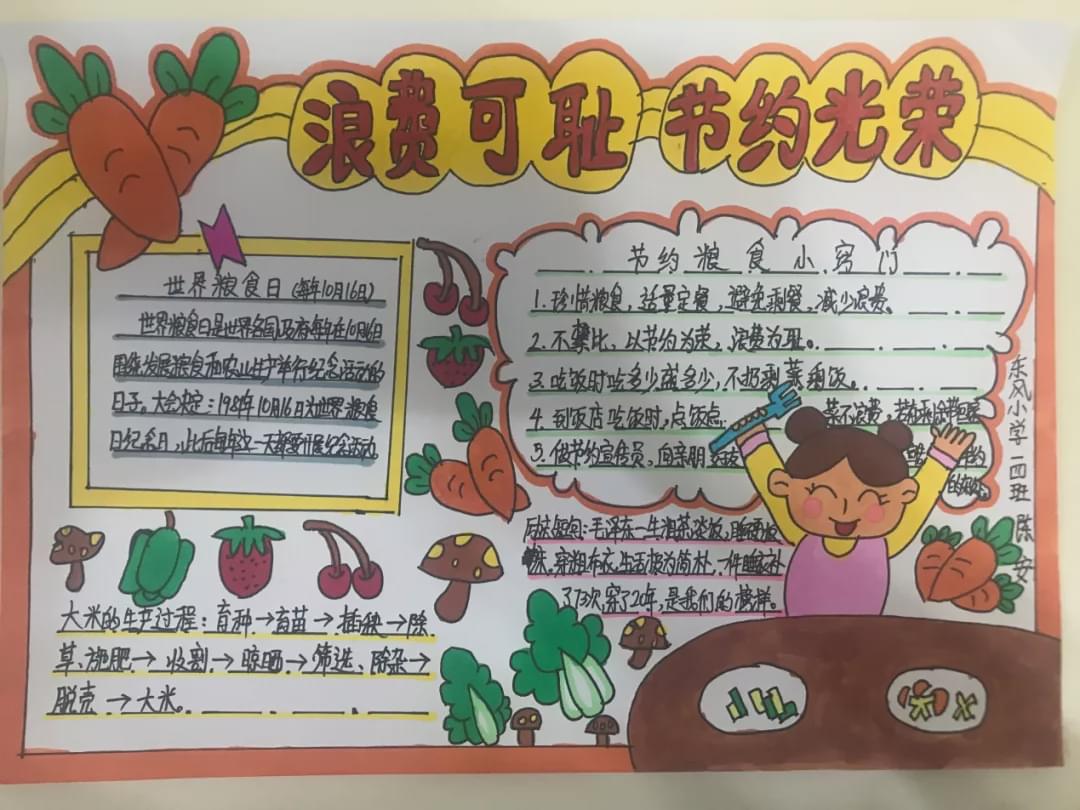 浪费可耻 节约光荣
世界粮食日（每年10月16日）
世界粮食日是世界各国政府每年在10月16日
围绕发展粮食和农业生产举行纪念活动的
日子。大会决定：1981年10月16日为世界粮食
日纪念日，此后每年这一天都要开展纪念活动。
节约粮食小窍门
1.珍惜粮食，适量定餐，避免剩餐，减少浪费。
2.不攀比，以节约为荣，浪费为耻。
3.吃饭时吃多少盛多少，不扔剩菜剩饭。
4.到饭店吃饭时，点饭点 菜不浪费，若有剩余带回家
5.做节约宣传员，向亲朋
毛泽东一生粗茶淡饭，睡硬板
床，穿粗布衣，生活极为简朴，一件睡衣补
了73次，穿了20年，是我们的榜样。
大米的生产过程：育种→育苗→插秧→除
草、施肥→收割→晾晒→筛选、除杂→
脱壳→大米。
东风小学一四班 陈安